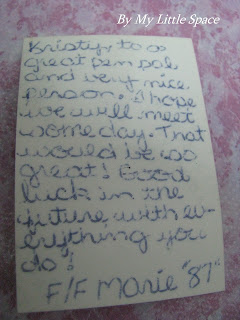 By My Little Space
Kristy, to a
great pen pal
and very nice
person. I hope
we will meet
someday. That
would be so
great! Good
luck in the
future with ev-
erything you
do!
F/F Marie "87"